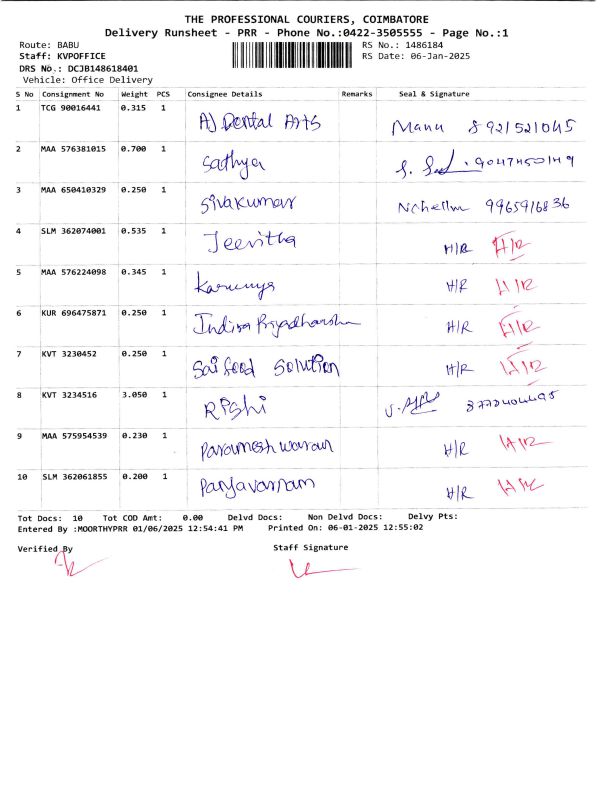 THE PROFESSIONAL COURIERS, COIMBATORE
Delivery Runsheet - PRR - Phone No.:0422-3505555 - Page No.:1
Route: BABU RS No.: 1486184
Staff: KVPOFFICE RS Date: 06-Jan-2025
DRS No.: DCJB148618401
Vehicle: Office Delivery
S No Consignment No Weight PCS Consignee Details Remarks Seal & Signature
1 TCG 90016441 0.315 1 AJ Dental Arts Manu 8921521045
2 MAA 576381015 0.700 1 Sathya
3 MAA 650410329 0.250 1 Sivakumar 9965916836
4 SLM 362074001 0.535 1 Jeevitha H/R H/R
5 MAA 576224098 0.345 1 Karunya H/R H/R
6 KUR 696475871 0.250 1 Indira Priyadharshu H/R H/R
7 KVT 3230452 0.250 1 Sai food Solution H/R H/R
8 KVT 3234516 3.050 1 Rishi
9 MAA 575954539 0.230 1 Parameshwaran H/R H/R
10 SLM 362061855 0.200 1 H/R H/R
Tot Docs: 10 Tot COD Amt: 0.00 Delvd Docs: Non Delvd Docs: Delvy Pts:
Entered By :MOORTHYPRR 01/06/2025 12:54:41 PM Printed On: 06-01-2025 12:55:02
Verified By Staff Signature